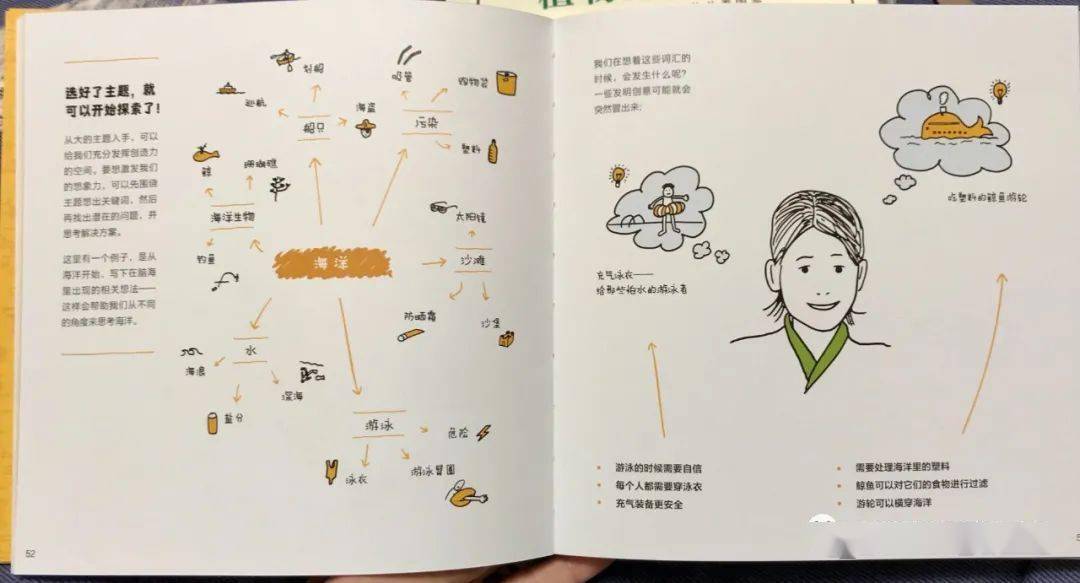 选好了主题，就
可以开始探索了!
从大的主题入手，可以
给我们充分发挥创造力
的空间。要想激发我们
的想象力，可以先围绕
主题想出关键词，然后
再找出潜在的问题，并
思考解决方案。
这里有一个例子，是从
海洋开始，写下在脑海
里出现的相关想法——
这样会帮助我们从不同
的角度来思考海洋。
划船
巡航
船只
海盗
吸管
购物袋
污染
塑料
鲸
珊瑚礁
海洋生物
钓鱼
海洋
太阳镜
沙滩
防晒霜
沙堡
水
海浪
深海
盐分
游泳
危险
泳衣
游泳臂圈
52
我们在想着这些词汇的
时候，会发生什么呢?
一些发明创意可能就会
突然冒出来:
吃塑料的鲸鱼游轮
充气泳衣——
给那些怕水的游泳者
• 游泳的时候需要自信
• 每个人都需要穿泳衣
• 充气装备更安全
• 需要处理海洋里的塑料
• 鲸鱼可以对它们的食物进行过滤
• 游轮可以横穿海洋